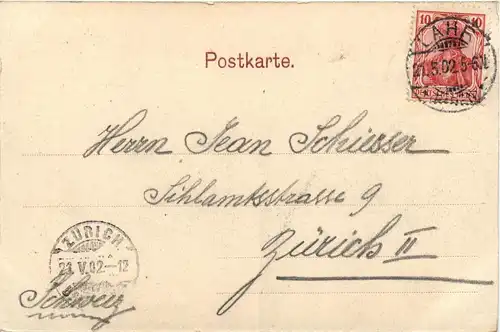 10 10
LAHR
21.5.02 5-6N.
Postkarte.
Herrn Jean Schiesser
Schlamtsstrasse 9
Zürich II
ZÜRICH
21.V.02.-12
Schweiz